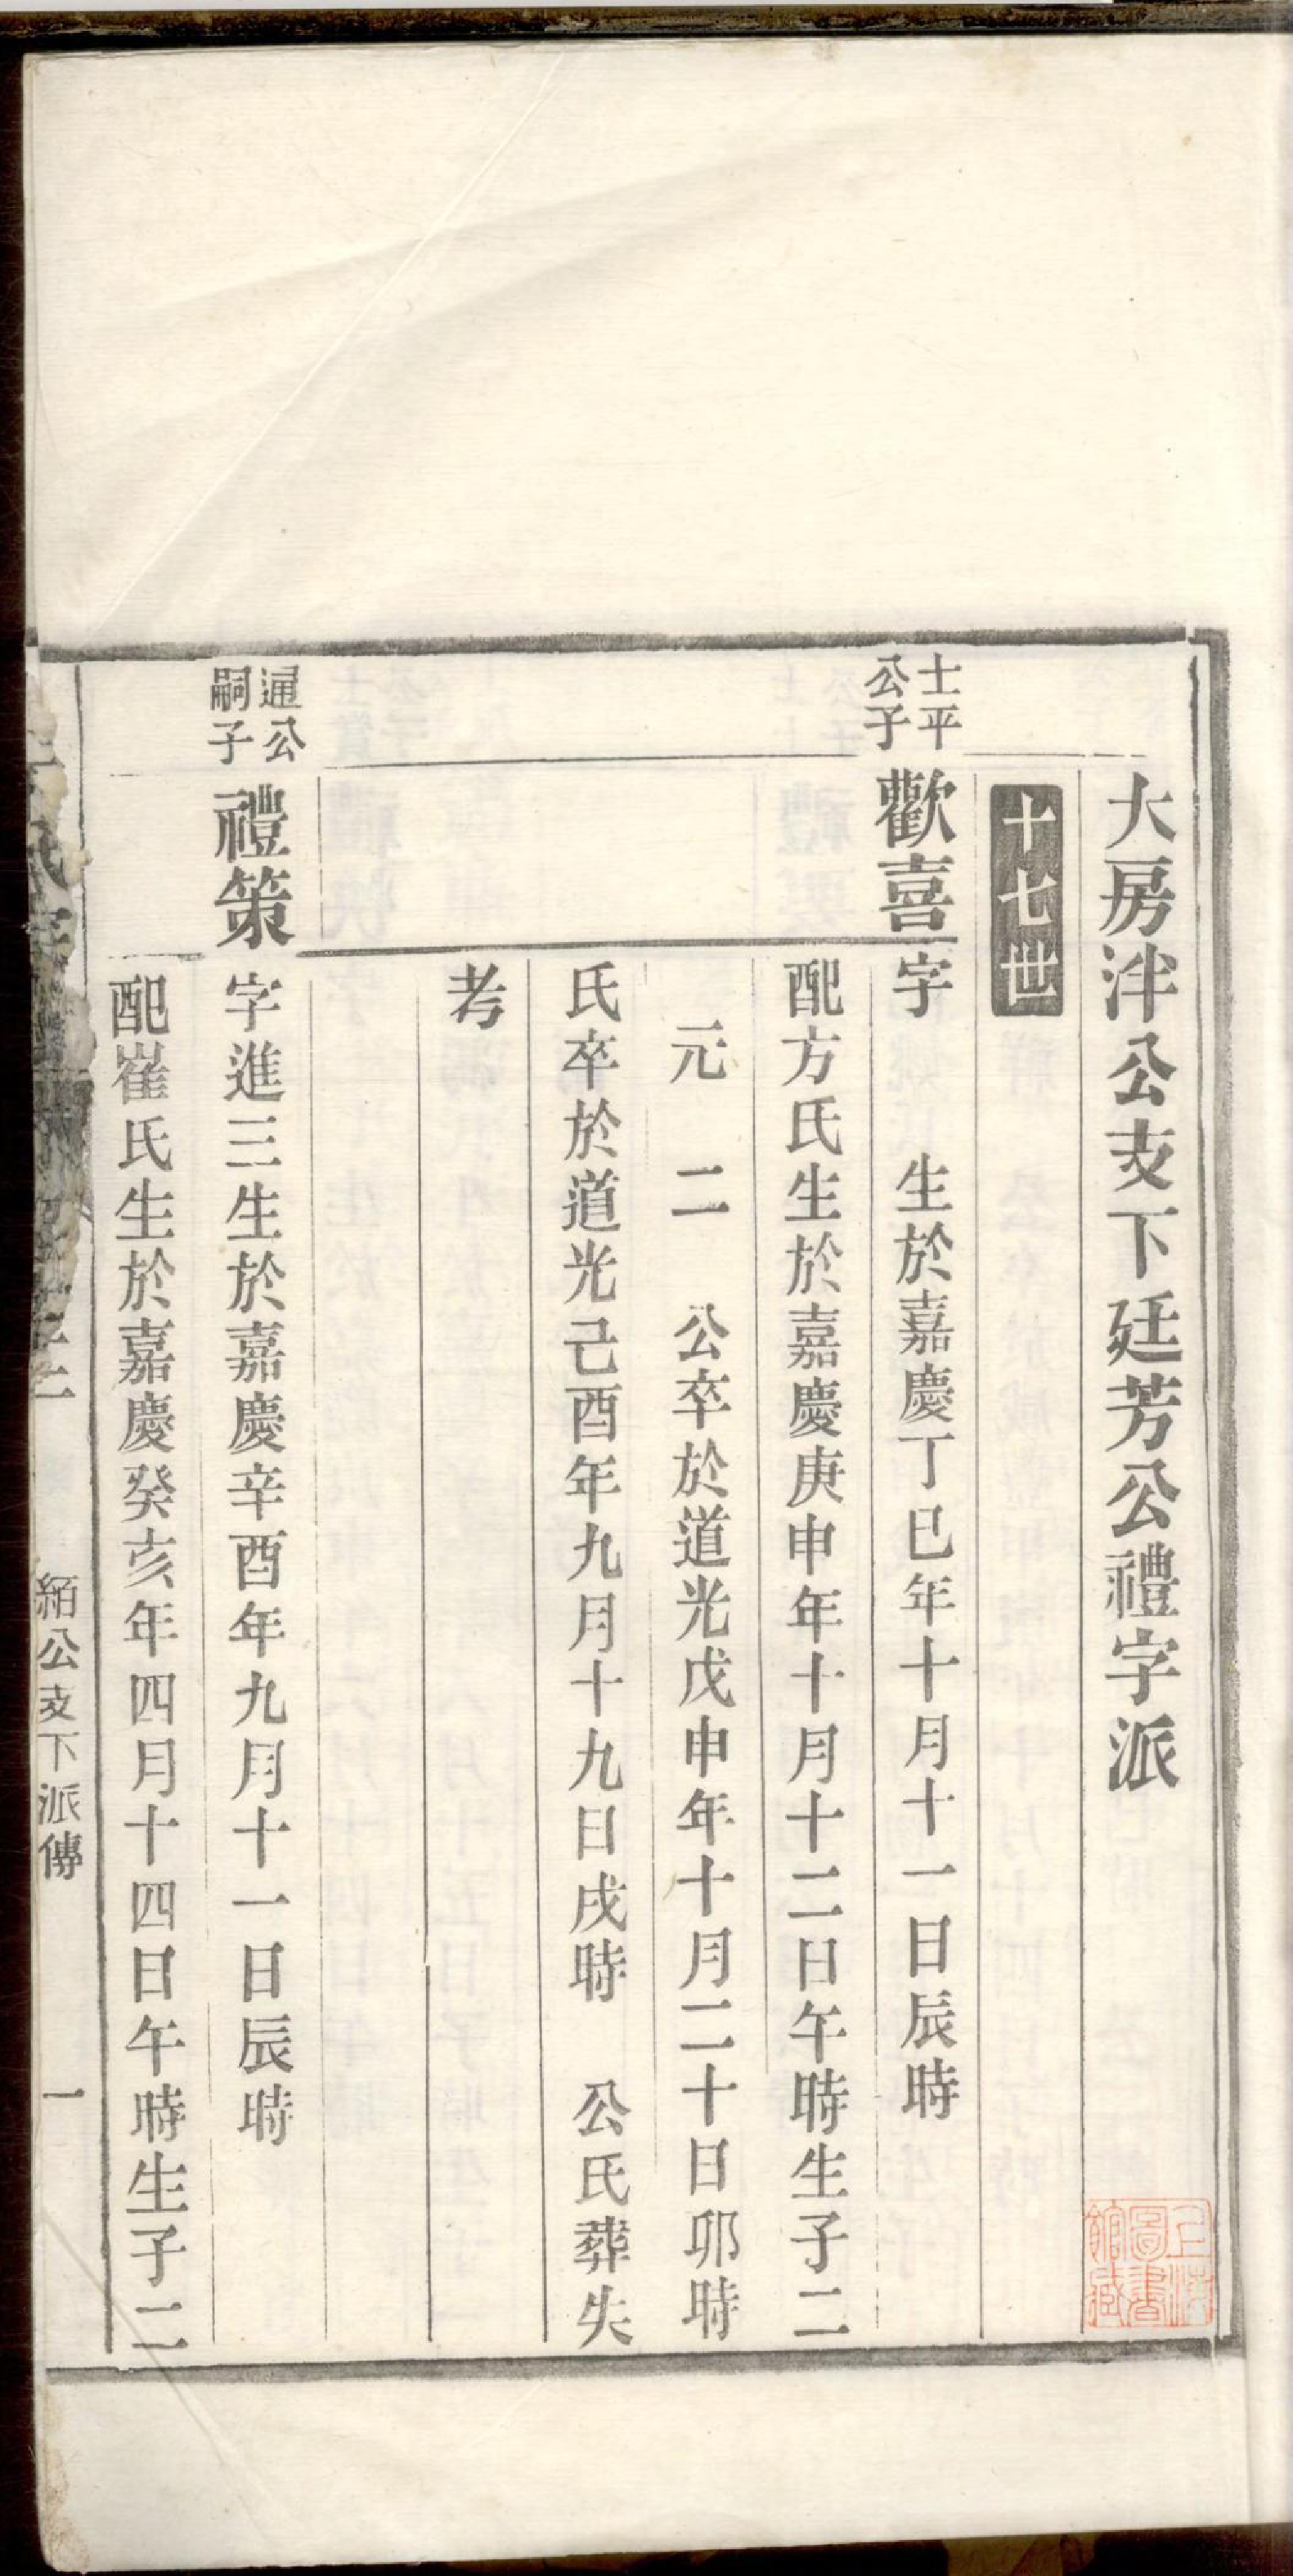 大房泮公支下廷芳公禮字派
十七世
士平
公子
歡喜
字　生於嘉慶丁巳年十月十一日辰時
配方氏生於嘉慶庚申年十月十二日午時生子二
元　二　公卒於道光戊申年十月二十日卯時
氏卒於道光己酉年九月十九日戌時　公氏葬失
考
通公
嗣子
禮策
字進三生於嘉慶辛酉年九月十一日辰時
配崔氏生於嘉慶癸亥年四月十四日午時生子二
公支下派傳
一
上海
圖書
館藏